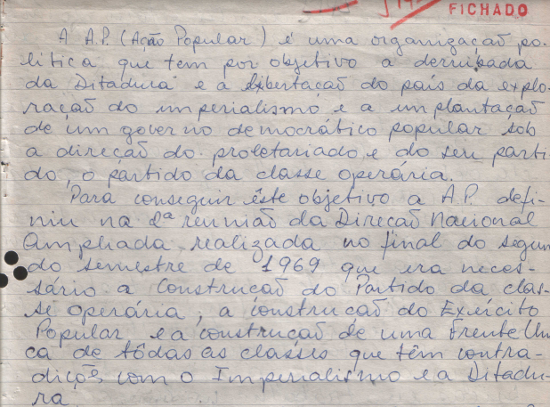 FICHADO
A A.P. (Ação Popular) é uma organização po-
lítica que têm por objetivo a derribada
da Ditadura e a libertação do país da explo-
ração do imperialismo e a implantação
de um governo democrático popular sob
a direção do proletariado e do seu parti-
do, o partido da classe operária.
Para conseguir êste objetivo a A.P. defi-
niu na 1ª reunião da Direção Nacional
Ampliada realizada no final do segun-
do semestre de 1969 que era neces-
sário a Construção do Partido da clas-
se operária, a construção do Exército
Popular e a construção de uma Frente Úni
ca de tôdas as classes que têm contra-
dições com o Imperialismo e a Ditadu-
ra.